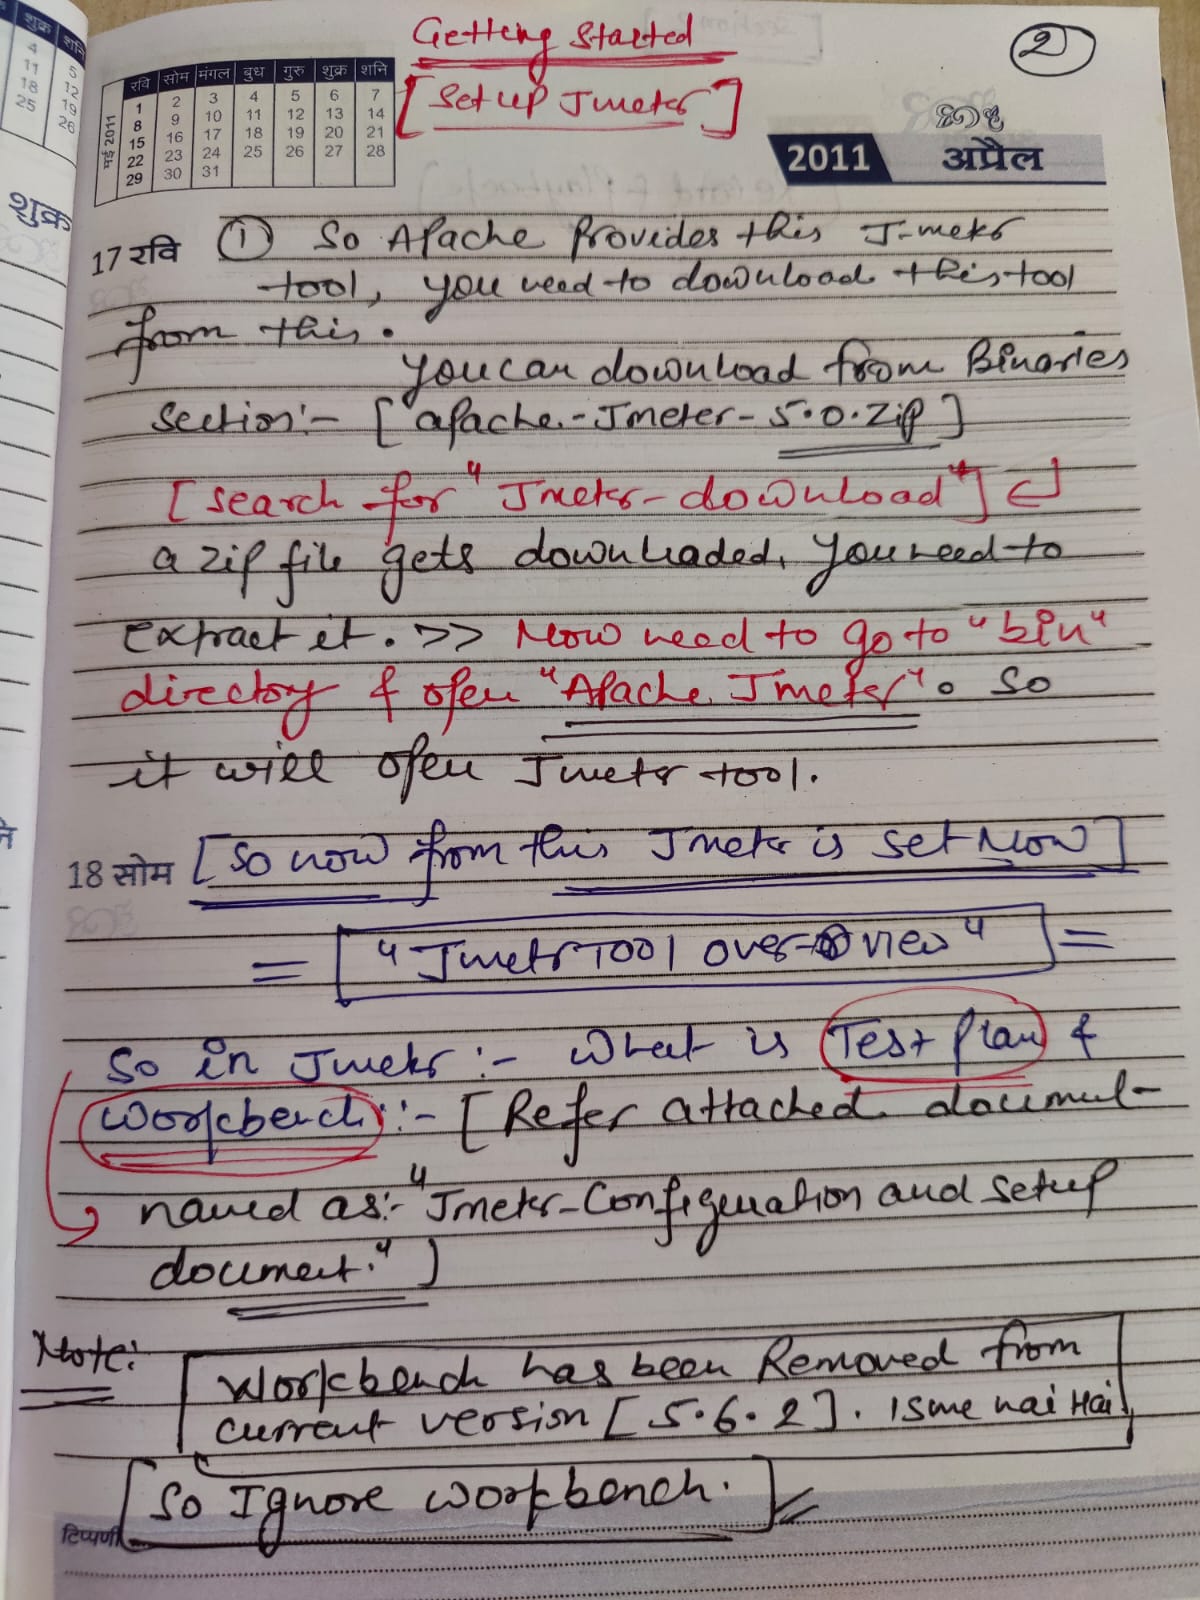 Getting Started
[Setup Jmeter]
2
शुक्र शनि
4 5
11 12
18 19
25 26
शुक्र
मई 2011
रवि सोम मंगल बुध गुरु शुक्र शनि
1 2 3 4 5 6 7
8 9 10 11 12 13 14
15 16 17 18 19 20 21
22 23 24 25 26 27 28
29 30 31
2011 अप्रैल
17 रवि
① So Apache Provides this J-meter
tool, you need to download this tool
from this.
You can download from Binaries
Section:- [apache-Jmeter-5.0.zip]
[Search for "Jmeter-download"] ↵
a zip file gets downloaded, you need to
extract it. >> Now need to go to "bin"
directory & open "Apache Jmeter". So
it will open Jmeter tool.
18 सोम
[So now from this Jmeter is set Now]
= ["Jmeter Tool over-view"] =
So in Jmeter:- what is Test plan &
Workbench::- [Refer attached document
named as:- "Jmeter-Configuration and setup
document."]
Note:
[Workbench has been Removed from
current version [5.6.2]. isme nai Hai]
[So Ignore workbench.]
टिप्पणी